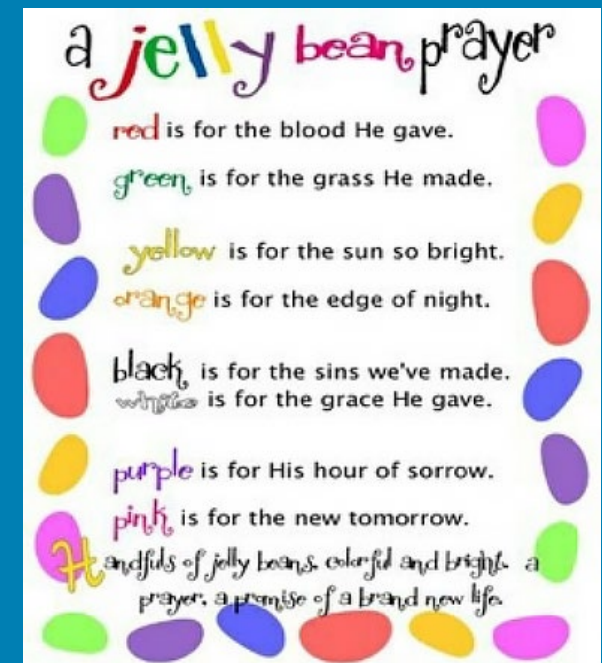 a jelly bean prayer
red is for the blood He gave.
green is for the grass He made.
yellow is for the sun so bright.
orange is for the edge of night.
black is for the sins we've made.
white is for the grace He gave.
purple is for His hour of sorrow.
pink is for the new tomorrow.
Handfuls of jelly beans, colorful and bright. a
prayer, a promise of a brand new life.